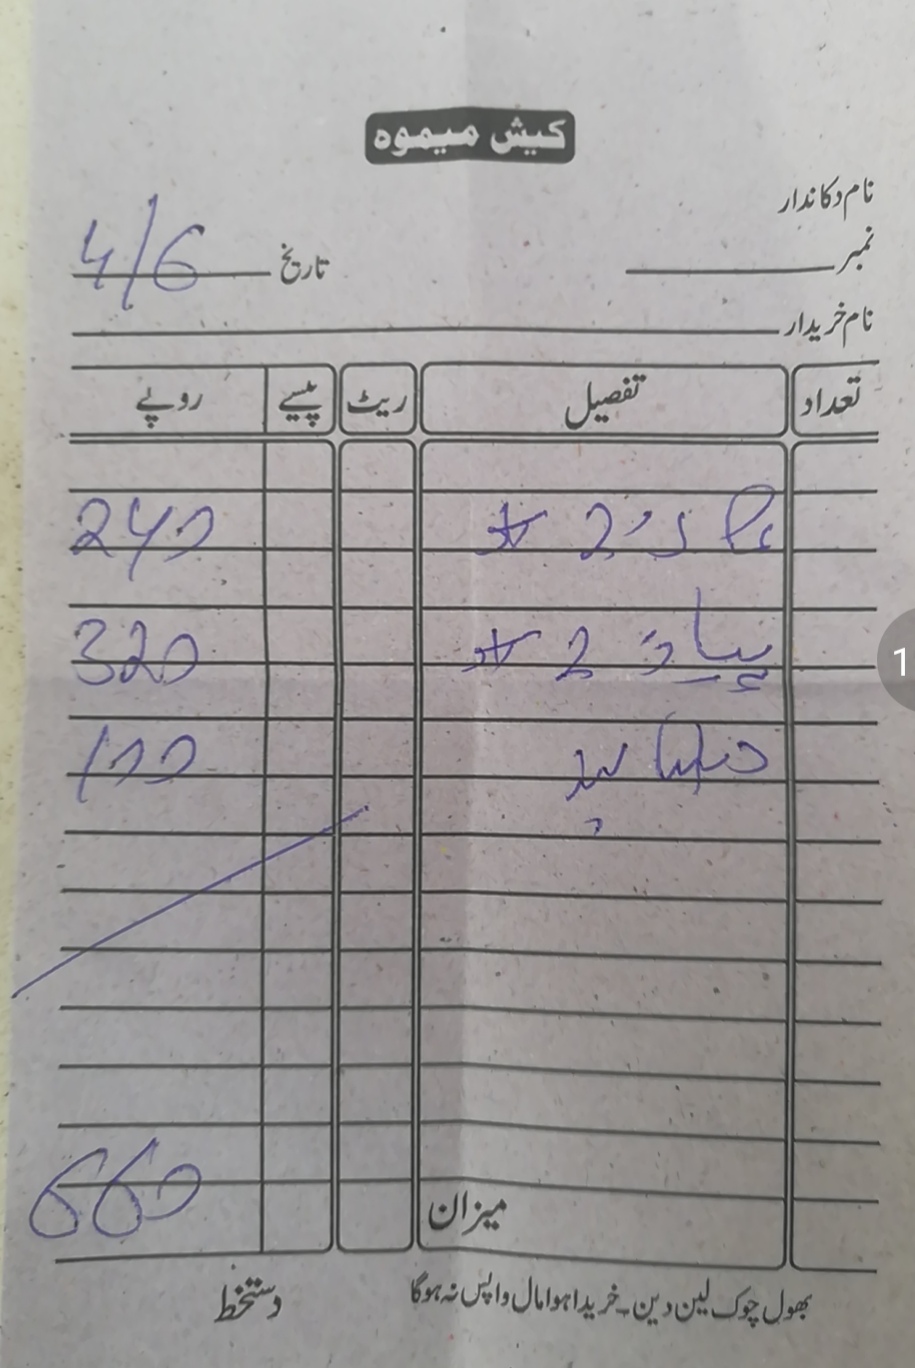 کیش میموہ
نام دکاندار
نمبر تاریخ 4/6
نام خریدار
تعداد تفصیل ریٹ پیسے روپے
2 240
پیاز 2 320
100
میزان 660
بھول چوک لین دین۔ خریدا ہوا مال واپس نہ ہوگا
دستخط
1